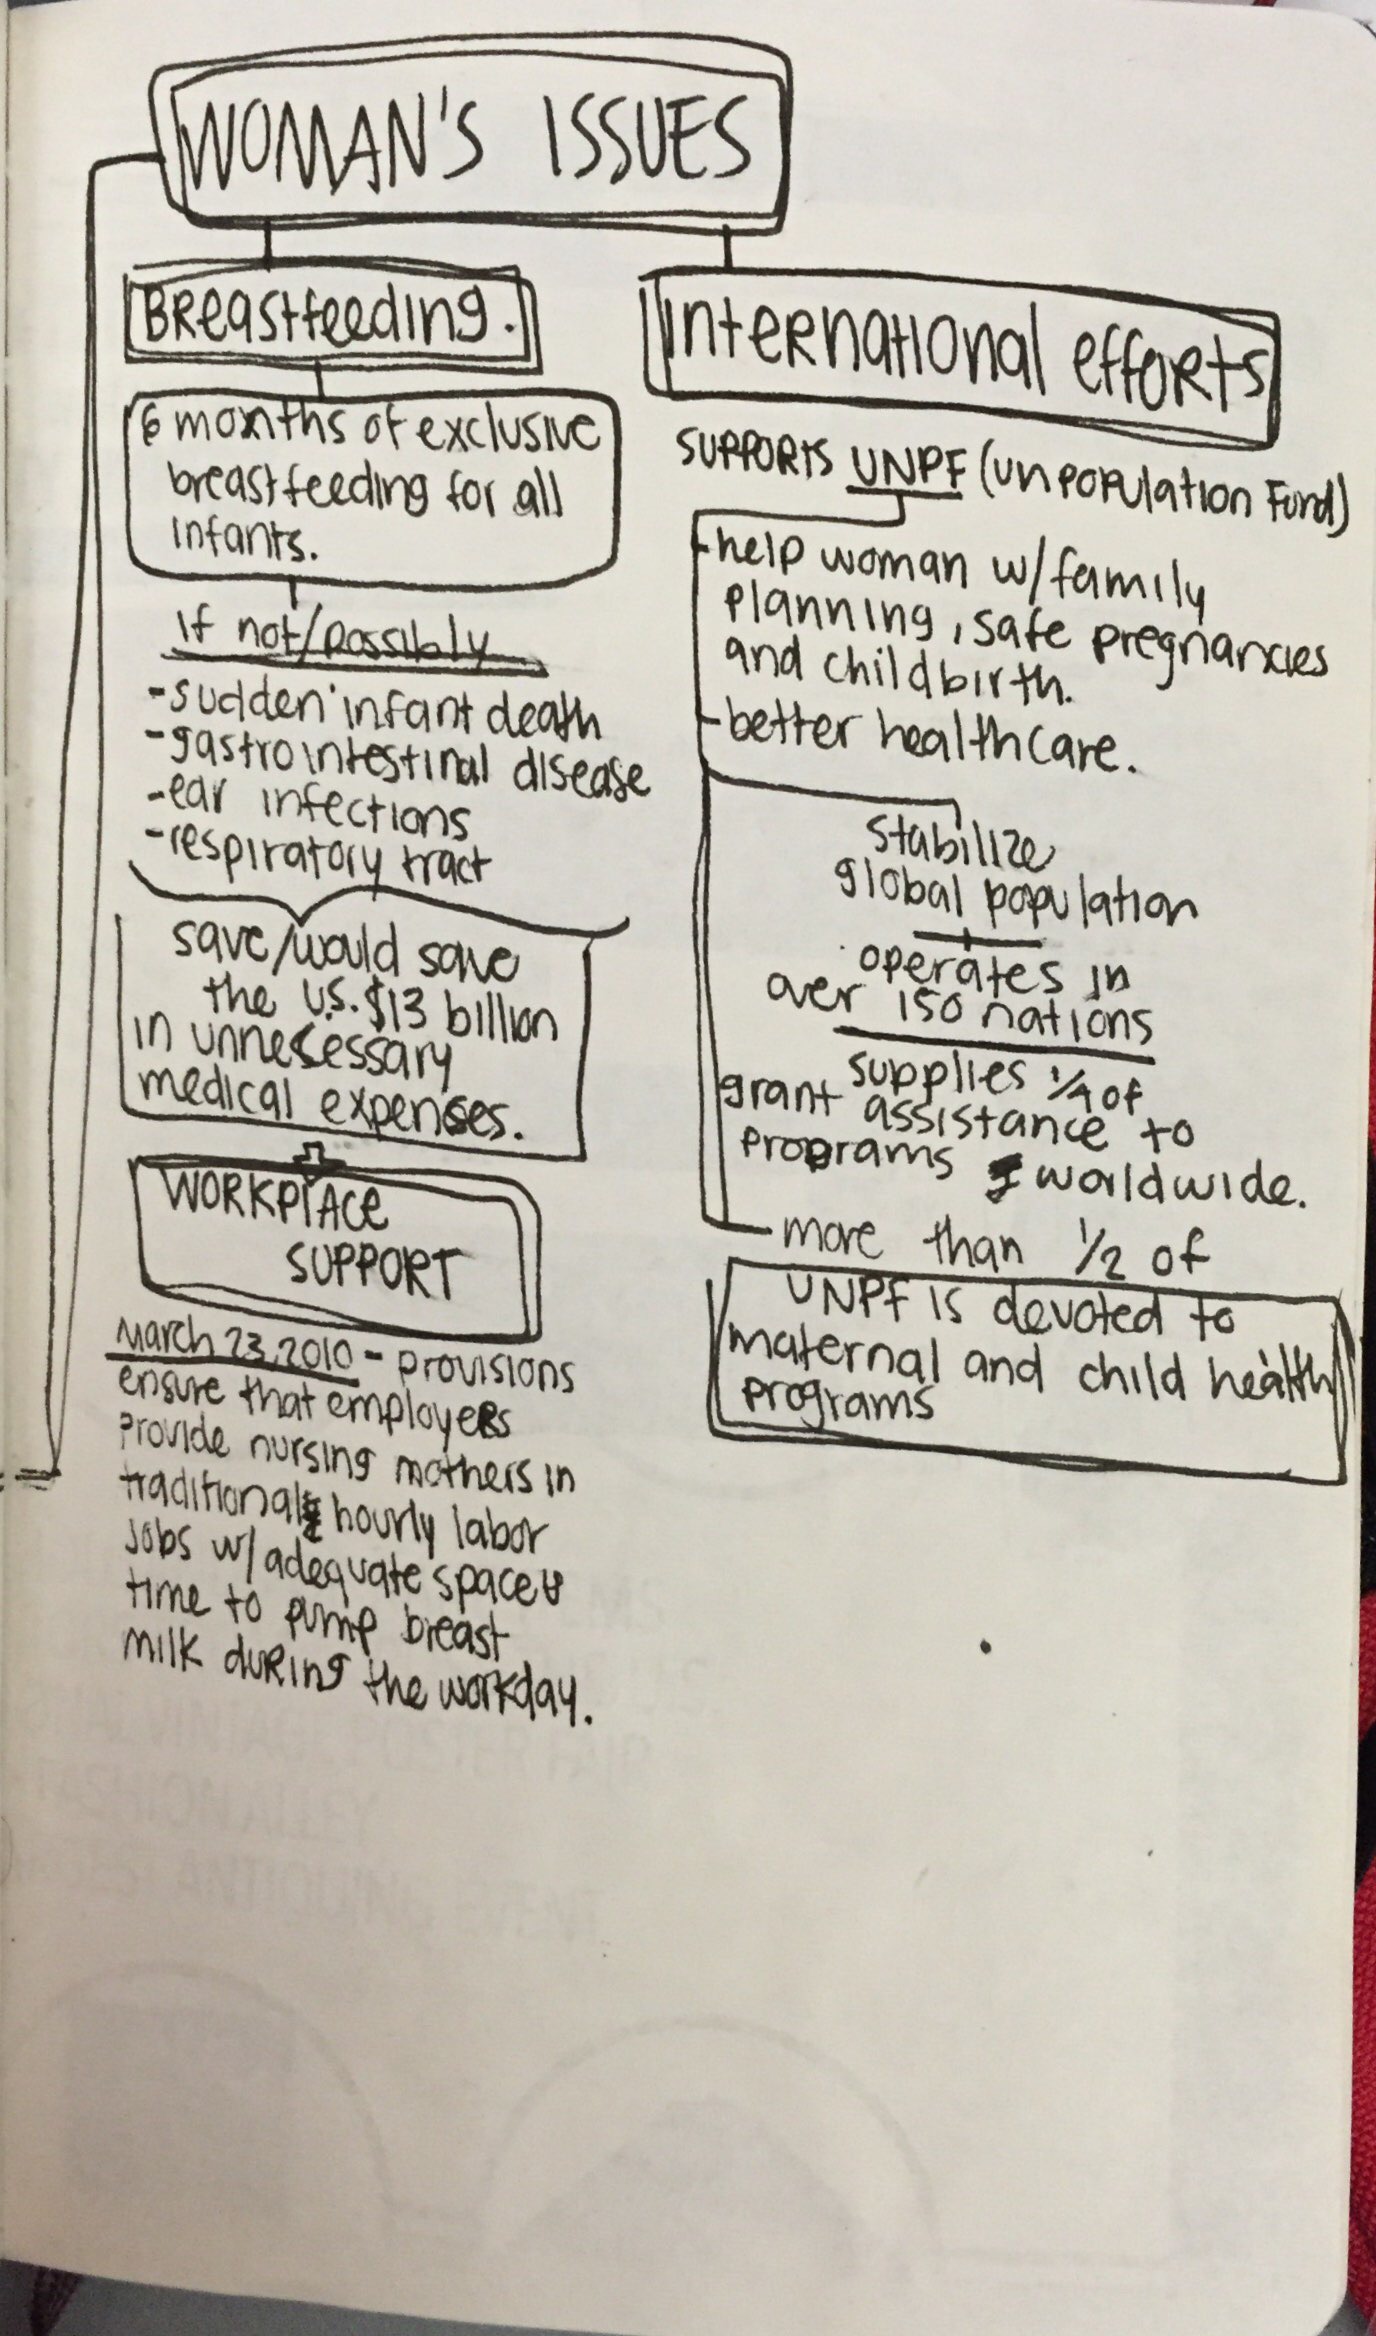 WOMAN'S ISSUES
BREastfeeding.
6 months of exclusive
breastfeeding for all
infants.
if not/possibly
-sudden infant death
-gastrointestinal disease
-ear infections
-respiratory tract
save/would save
the U.S. $13 billion
in unnecessary
medical expenses.
WORKPlACe
SUPPORT
March 23, 2010 - provisions
ensure that employers
provide nursing mothers in
traditional hourly labor
jobs w/ adequate space &
time to pump breast
milk during the workday.
international efforts
SUPPORTS UNPF (un population Fund)
-help woman w/ family
planning, safe pregnancies
and childbirth.
-better healthcare.
stabilize
global population
operates in
over 150 nations
supplies 1/4 of
grant assistance to
programs worldwide.
- more than 1/2 of
UNPF is devoted to
maternal and child health
programs